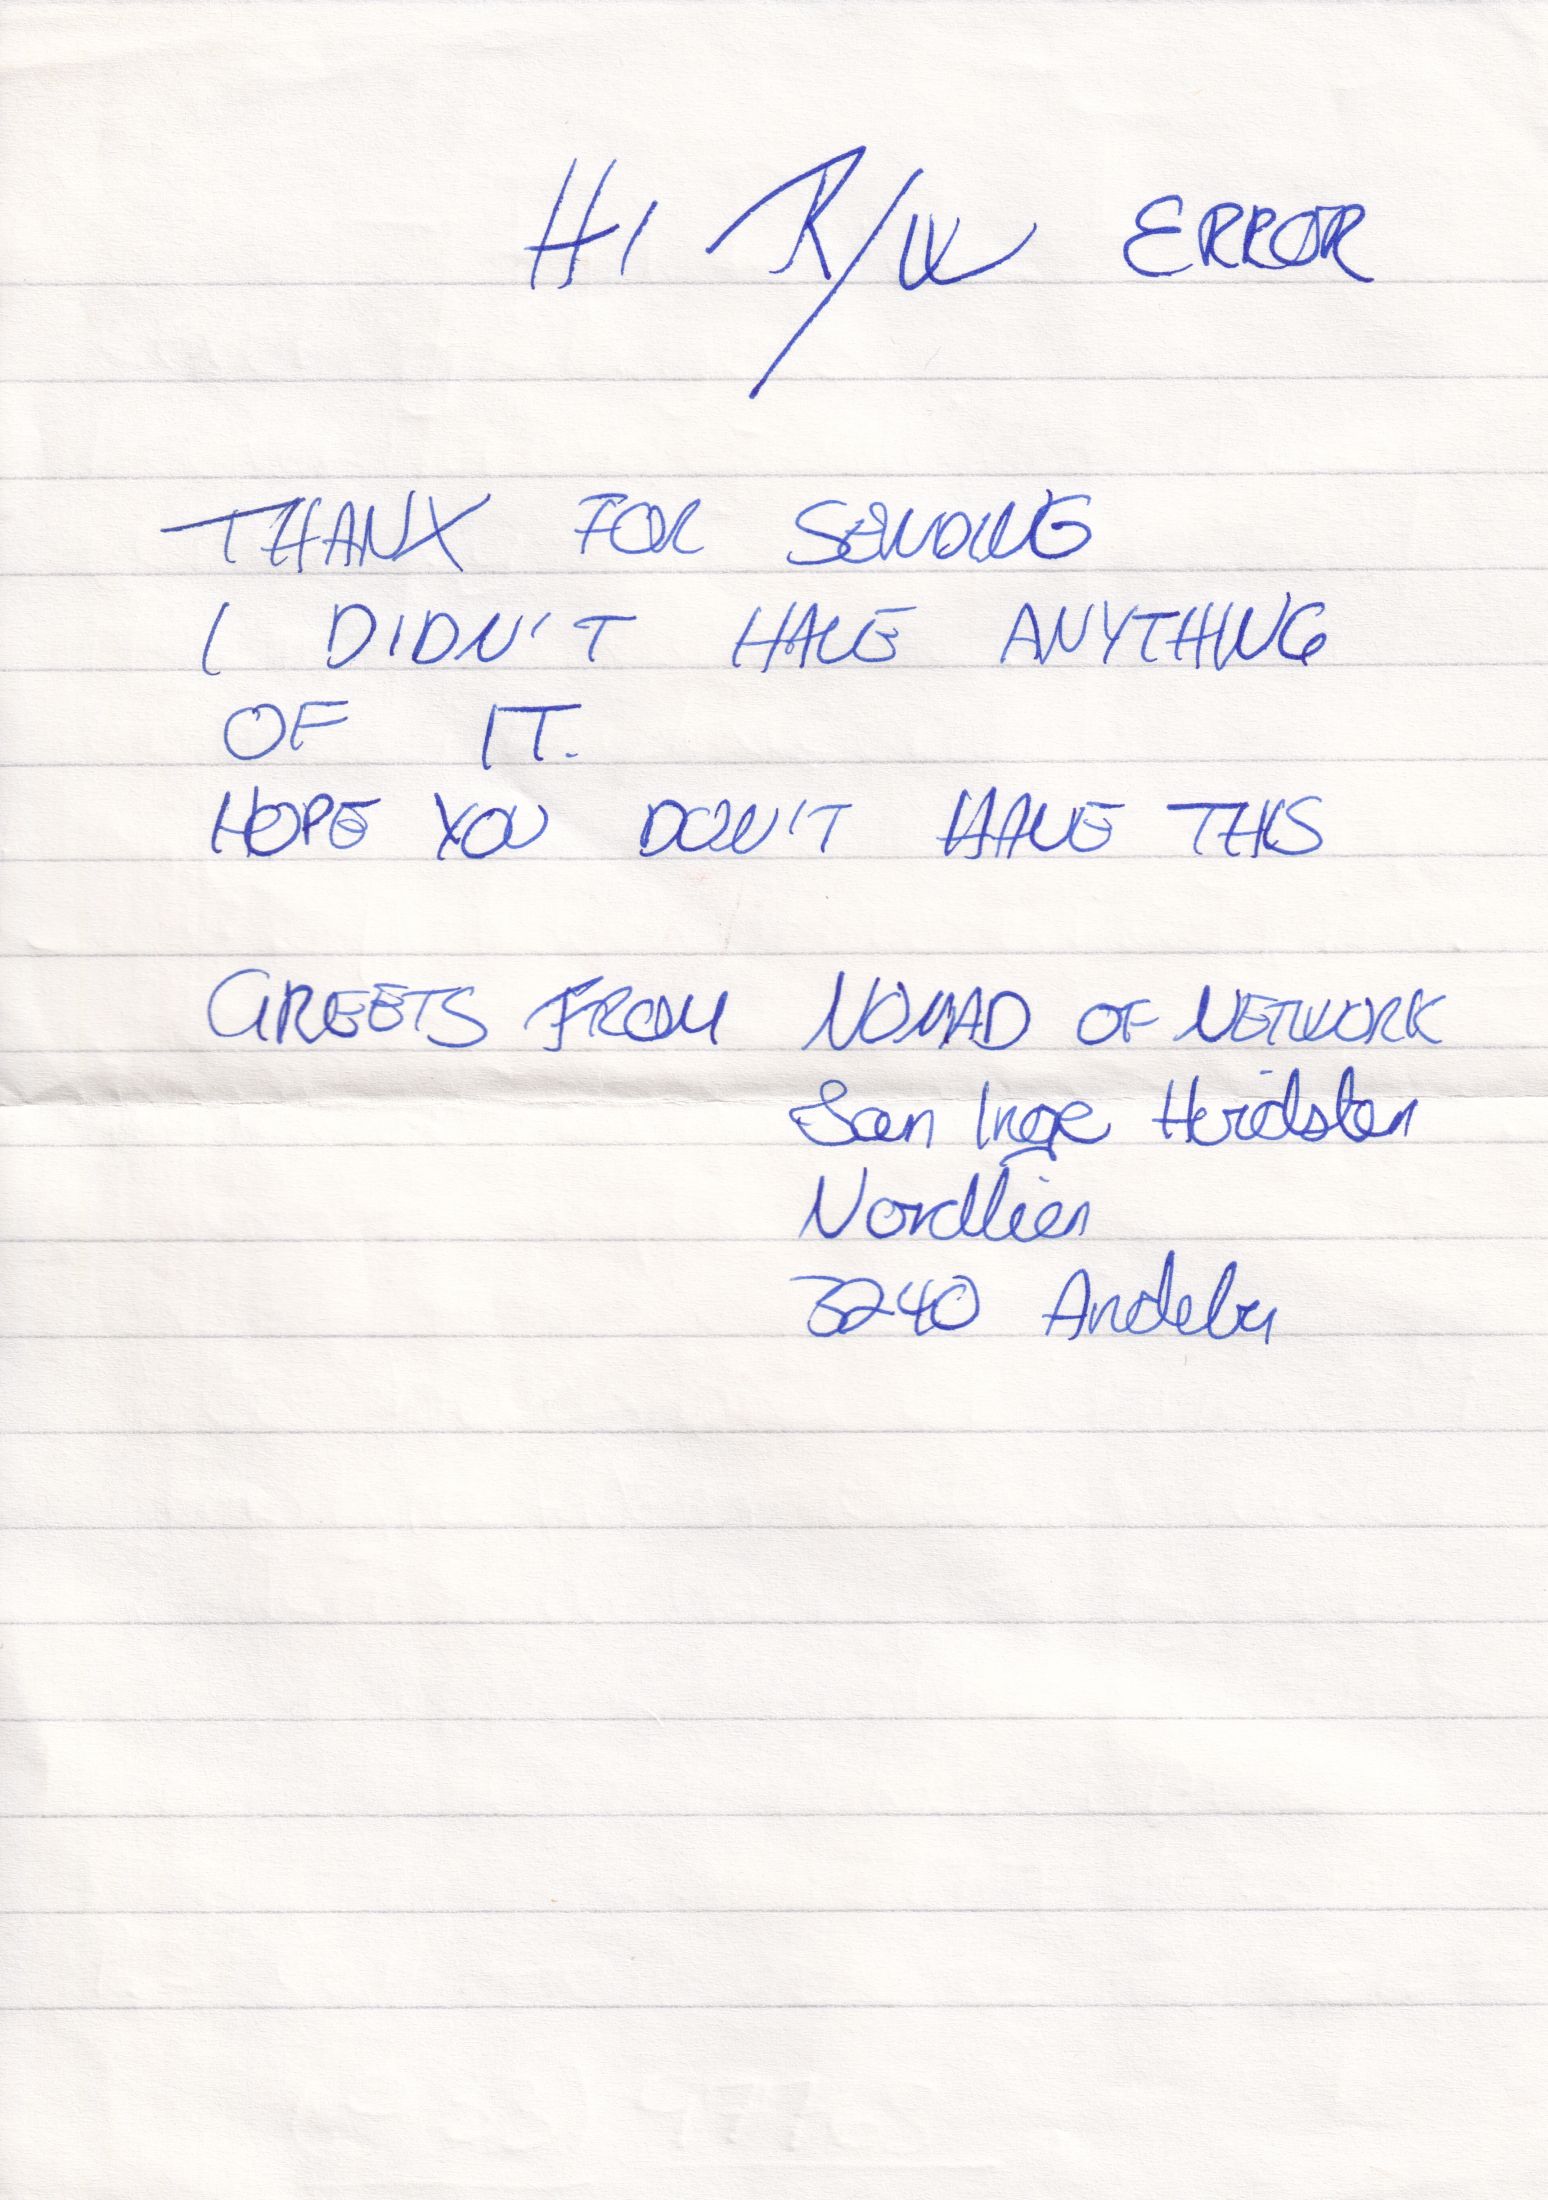 HI R/W ERROR
THANX FOR SENDING
I DIDN'T HAVE ANYTHING
OF IT.
HOPE YOU DON'T HAVE THIS
GREETS FROM NOMAD OF NETWORK
Inge
Nordlien
3240 Andebu